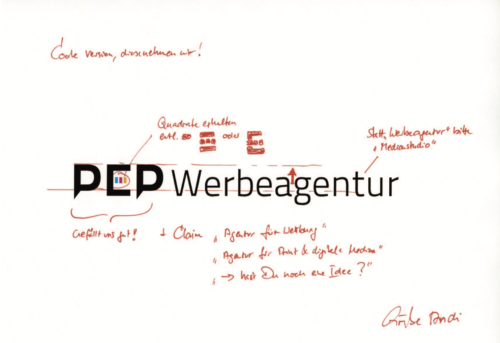 Coole Version, diese nehmen wir!
Quadrate erhalten
evtl. oder
Statt „Werbeagentur“ bitte
„Mediastudio“
PEP Werbeagentur
Gefällt uns gut! + Claim „Agentur für Werbung“
„Agentur für Print & digitale Medien“
„→ hast Du noch eine Idee?“
Grüße Andi